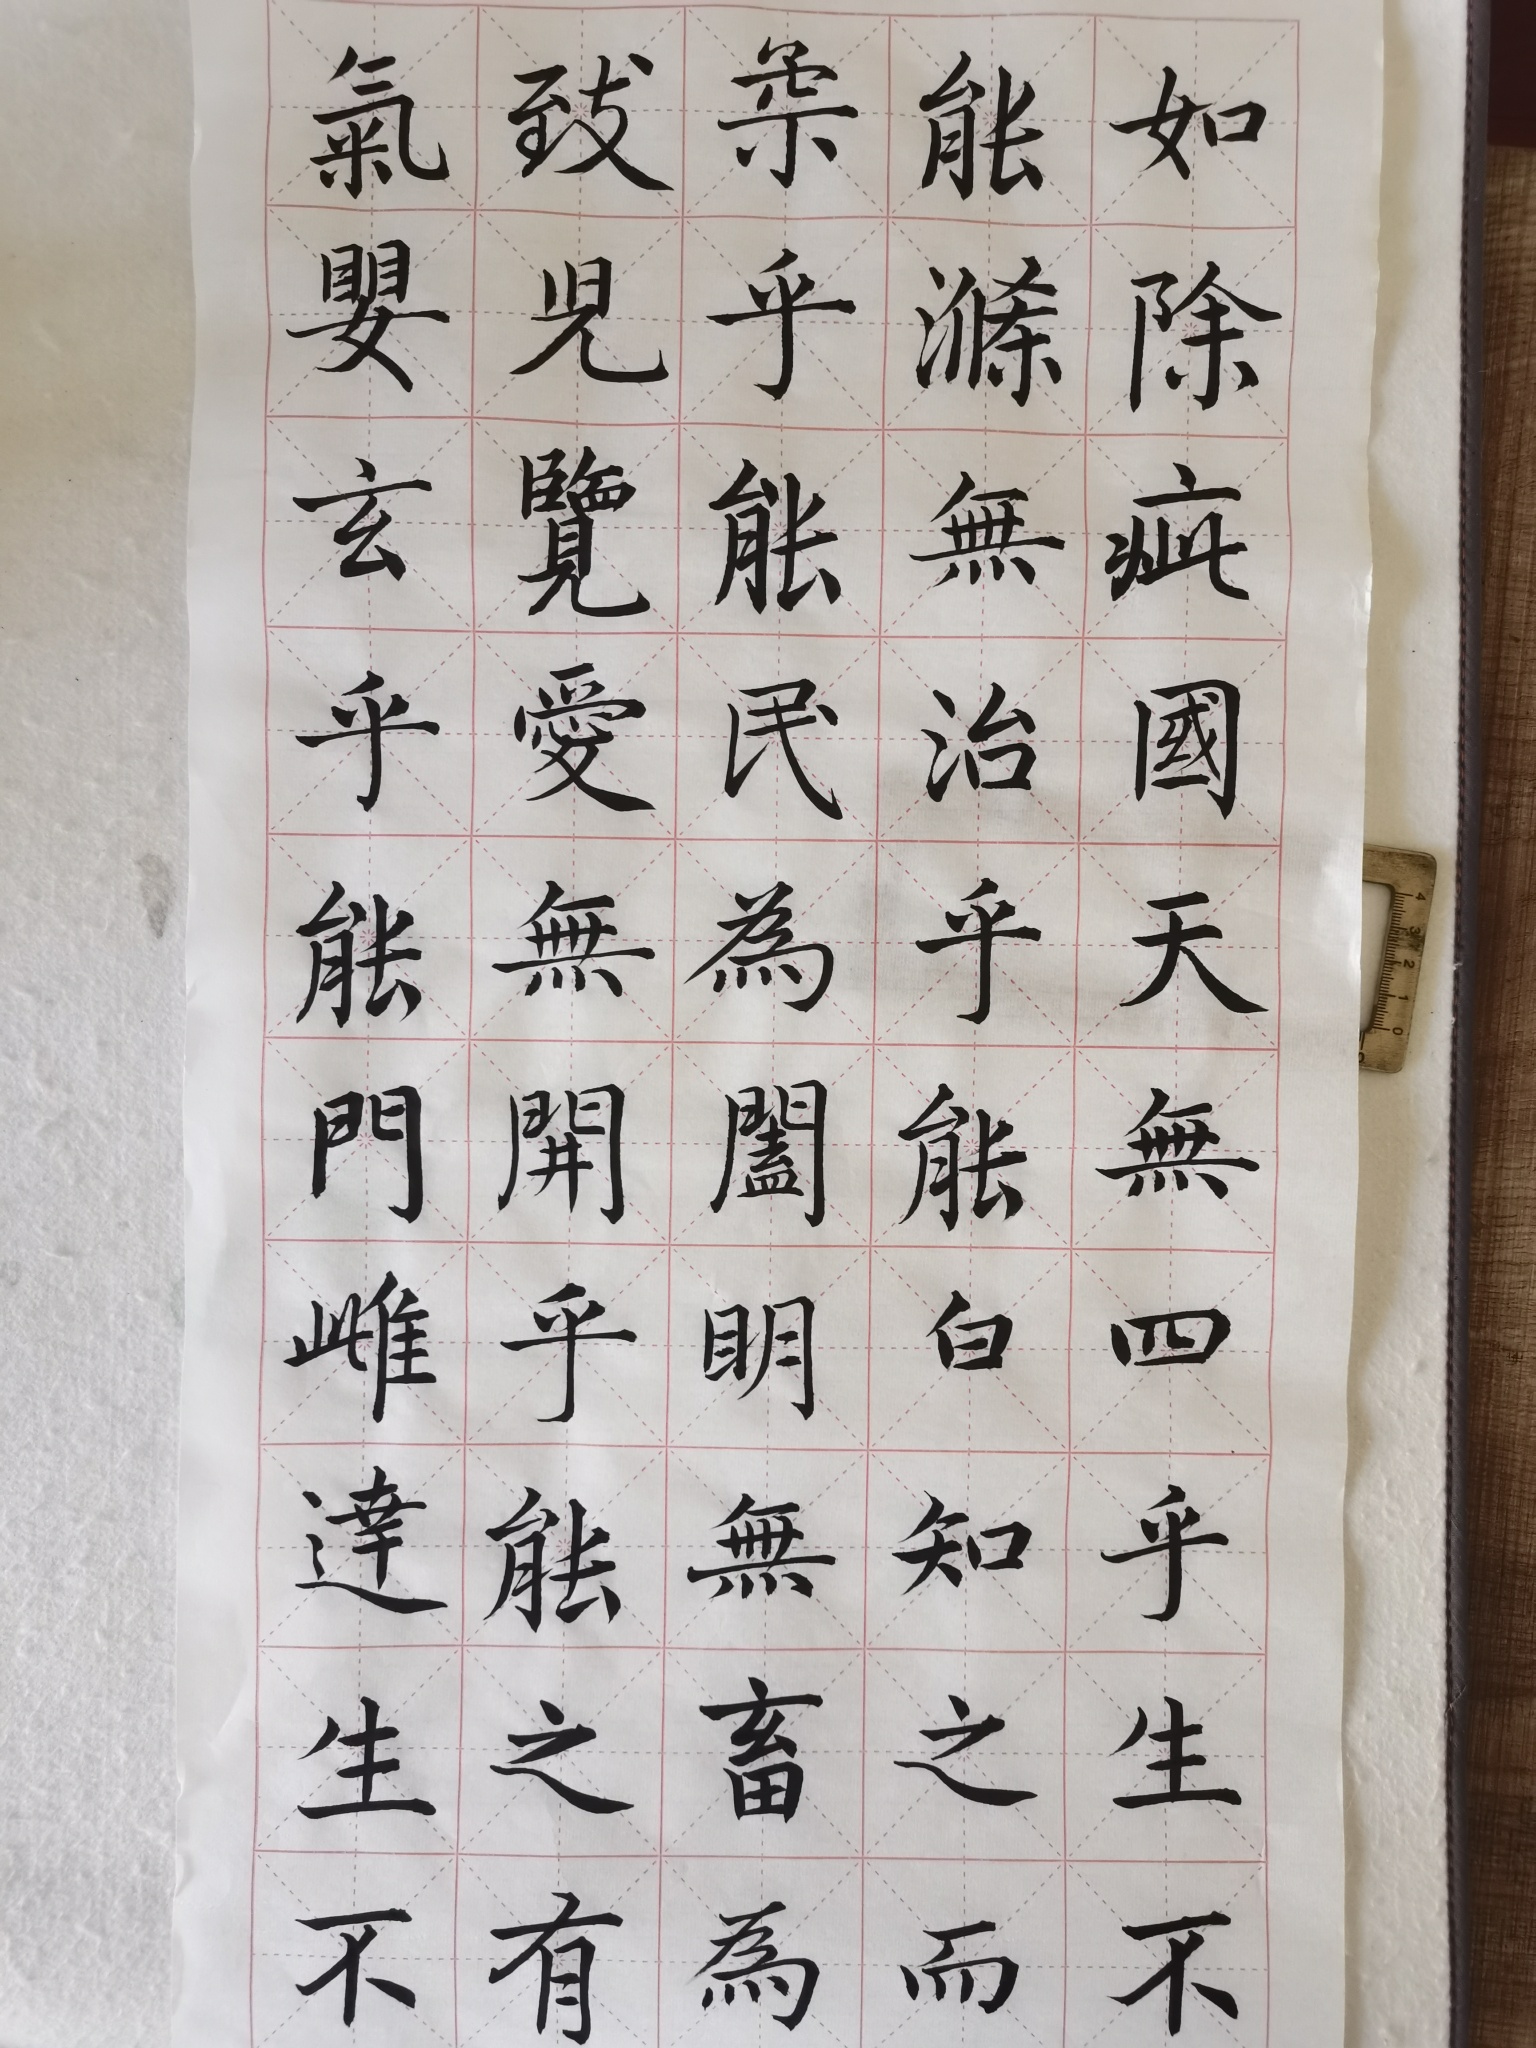 氣致柔能如
嬰兒乎滌除
玄覽能無疵
乎愛民治國
能無為乎天
門開闔能無
雌乎明白四
達能無知乎
生之畜之生
不有為而不
4 3 2 1 0